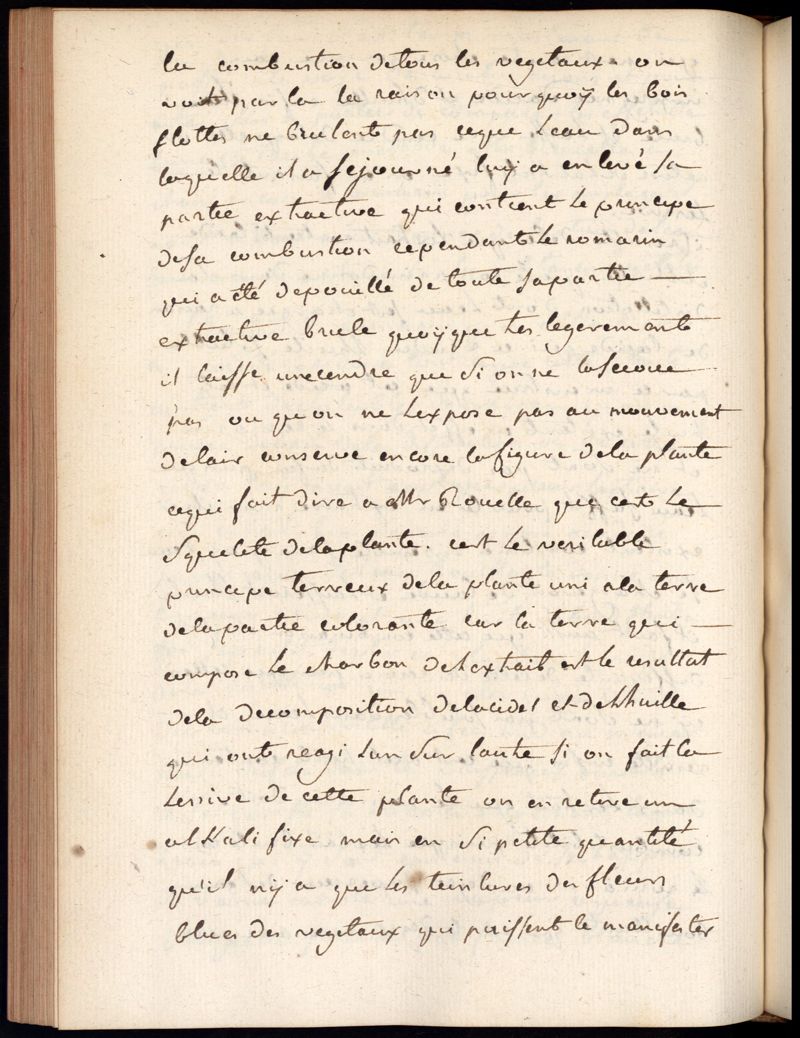 la combustion de tous les vegetaux. on
voit par la la raison pourquoÿ les bois
flottes ne brulent pas ceque Leau dans
laquelle il a sejourné luÿ a enlevé sa
partie extractive qui contient le principe
de sa combustion cependant le romarin
qui a été depouillé de toute sa partie —
extractive brule quoÿque tres legerement
il laisse une cendre que si on ne la secoue
pas ou qu on ne Lexpose pas au mouvement
de lair conserve encore la figure de la plante
cequi fait dire a Mr Rouelle que cest Le
squelete de la plante. cest Le veritable
principe terreux de la plante uni a la terre
de la partie colorante car la terre qui —
compose Le charbon de Lextrait est le resultat
de la decomposition de lacide et de Lhuille
qui ont reagi Lun sur lautre si on fait la
Lessive de cette plante on en retire un
alkali fixe mais en si petite quantité
qu'il nÿ a que Les teintures des fleurs
bleues des vegetaux qui puissent le manifester